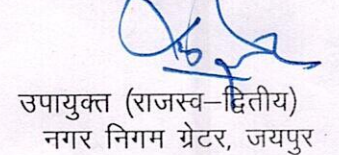 उपायुक्त (राजस्व–द्वितीय)
नगर निगम ग्रेटर, जयपुर